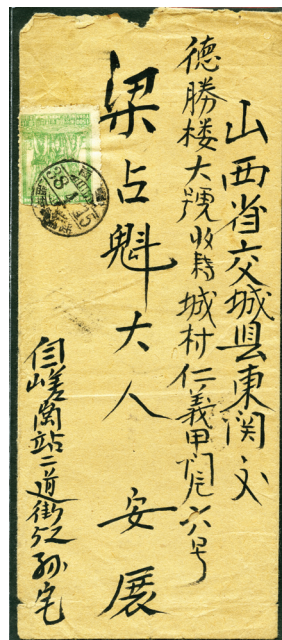 山西省交城县東関交
德勝楼大號收轉城村仁義甲閭六号
梁占魁大人 安展
窩站二道街 孙宅